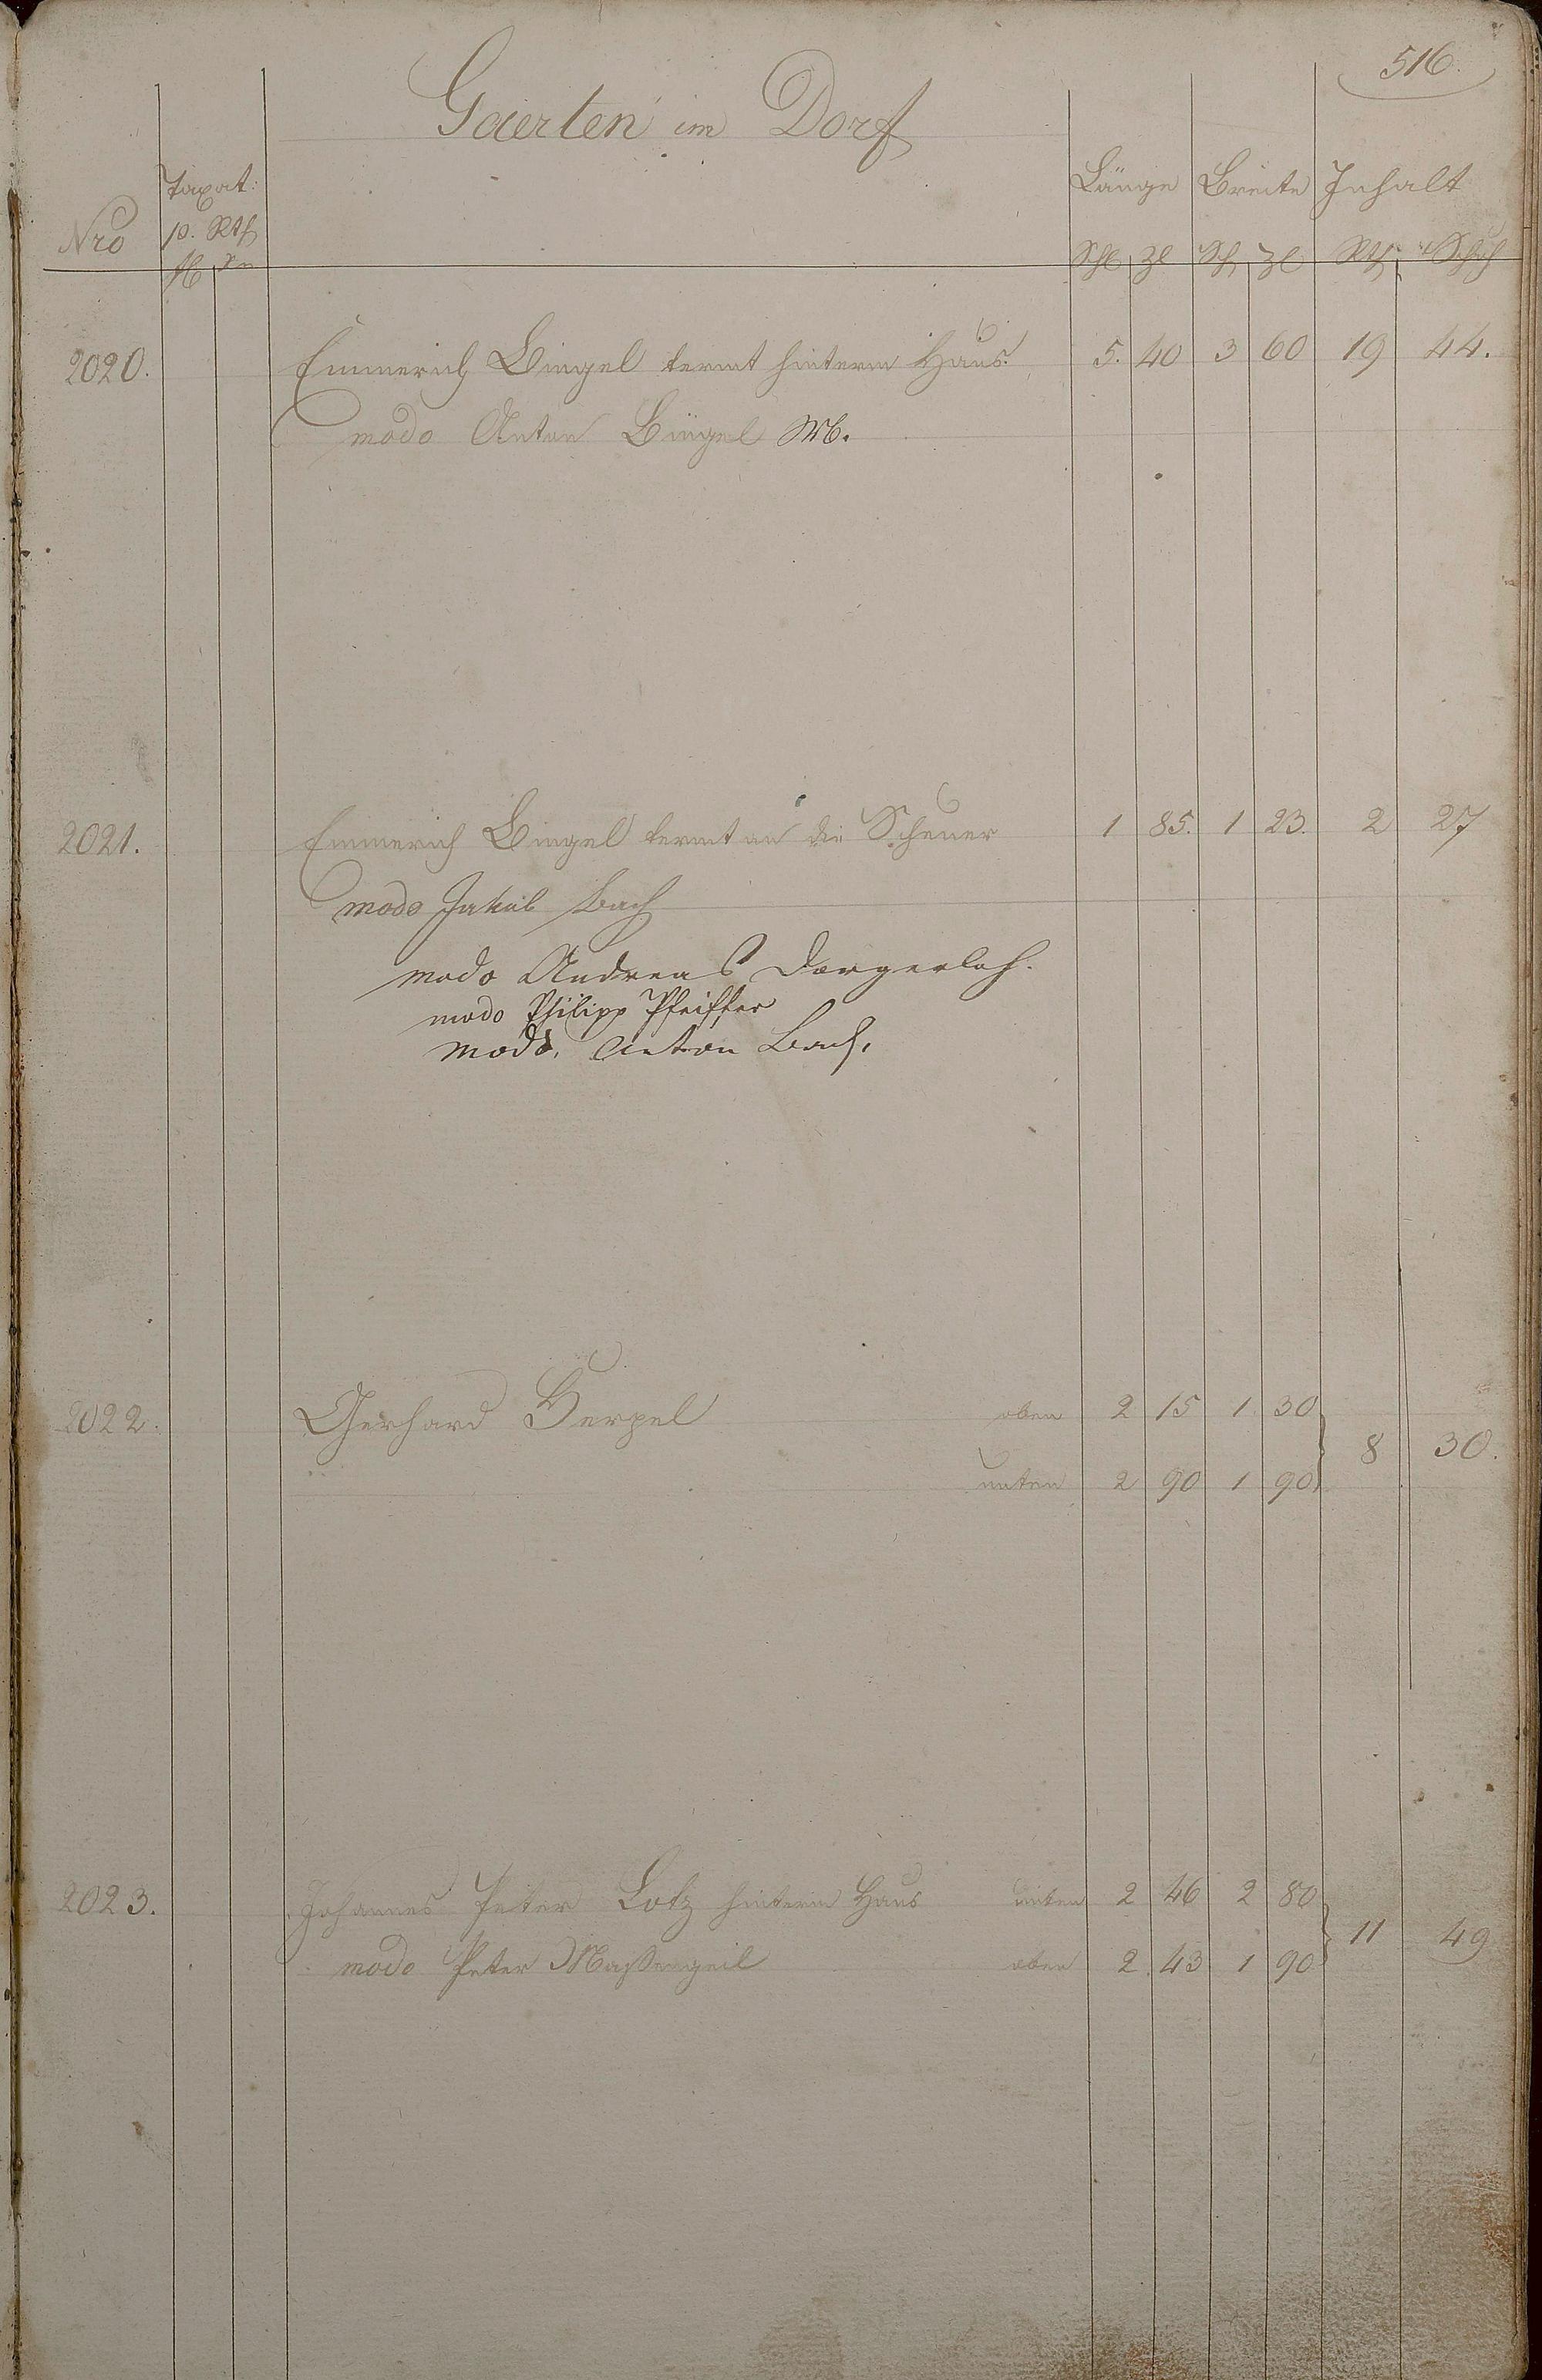 516.
Gaerten im Dorf
Taxat:
Länge Breite Inhalt
Nro p. Rth
fl xr Sch Zl Sch Zl Rth Schuh
2020. Emmerich Bingel termt hinterm Haus. 5. 40 3 60 19 44.
modo Anton Bingel
2021. Emmerich Bingel termt an die Scheuer 1 85. 1 23. 2 27
modo Jakob Bach
modo Andreas Dorgerloh.
modo Philipp Pfeiffer
modo. Anton Bach.
2022. Gerhard Herpel oben 2 15 1 30
8 30.
unten 2 90 1 90
2023. Johannes Peter Lotz hinterm Haus unten 2 46 2 80
11 49
modo Peter Maßengeil oben 2 43 1 90